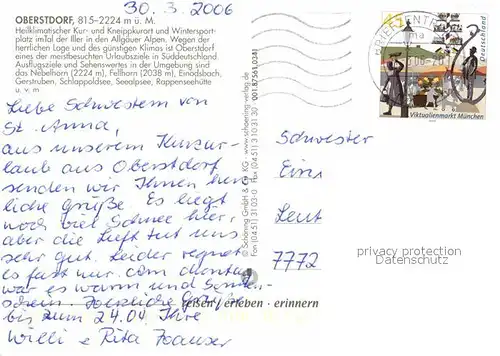 30. 3. 2006
OBERSTDORF, 815–2224 m ü. M.
Heilklimatischer Kur- und Kneippkurort und Wintersport-
platz im Tal der Iller in den Allgäuer Alpen. Wegen der
herrlichen Lage und des günstigen Klimas ist Oberstdorf
eines der meistbesuchten Urlaubsziele in Süddeutschland.
Ausflugsziele und Sehenswertes in der Umgebung sind
das Nebelhorn (2224 m), Fellhorn (2038 m), Einödsbach,
Gerstruben, Schlappoldsee, Seealpsee, Rappenseehütte
u. v. m
Liebe Schwestern von
St. Anna,
aus unserem Kurzur-
laub aus Oberstdorf
senden wir Ihnen herz
liche Grüße. Es liegt
noch viel Schnee hier,
aber die Luft tut uns
sehr gut. Leider regnet
es fast nur. am Montag
war es warm und Sonnen-
schein. Herzliche Grüße
bis zum 24.04 Ihre
Willi + Rita
© Schöning GmbH & Co. KG · www.schoening-verlag.de
Fon (0451) 31 03-0 · Fax (0451) 3 10 31 30
001 87561 0381
reisen / erleben · erinnern
BRIEFZENTRUM
Deutschland
Viktualienmarkt München
Schwester
Leut
7772
privacy protection
Datenschutz